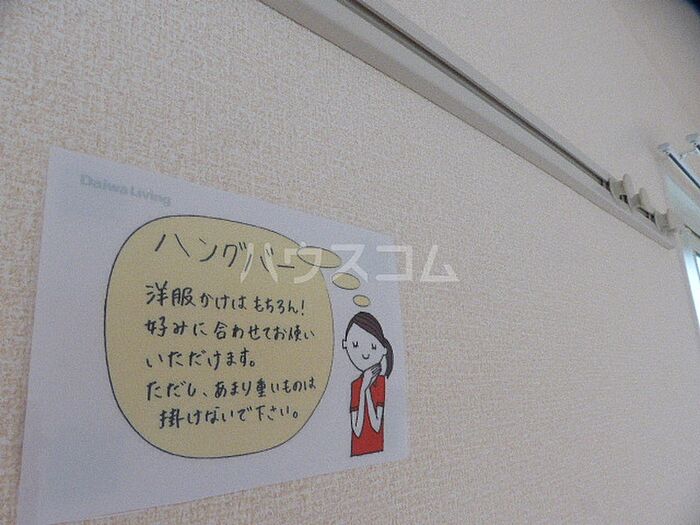 Daiwa Living
ハングバー
ハウスコム
洋服かけはもちろん!
好みに合わせてお使い
いただけます。
ただし、あまり重いものは
掛けないで下さい。